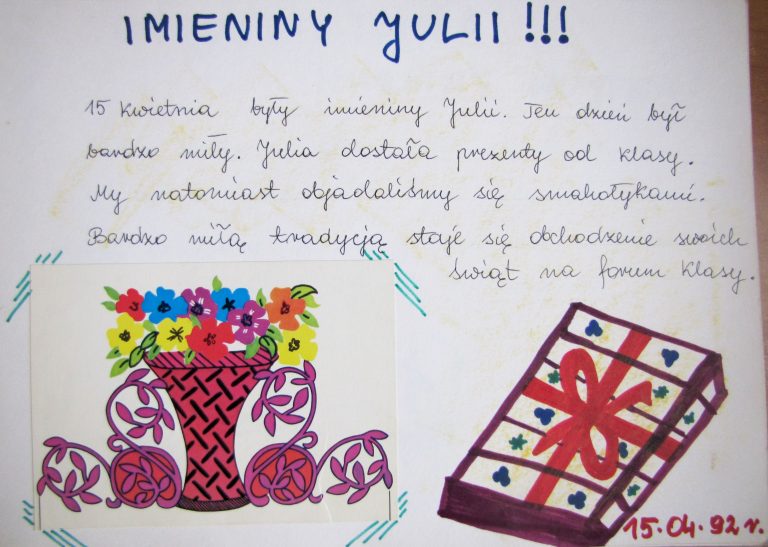 IMIENINY JULII!!!
15 kwietnia były imieniny Julii. Ten dzień był
bardzo miły. Julia dostała prezenty od klasy.
My natomiast objadaliśmy się smakołykami.
Bardzo miłą tradycją staje się obchodzenie swoich
świąt na forum klasy.
15.04.92 r.